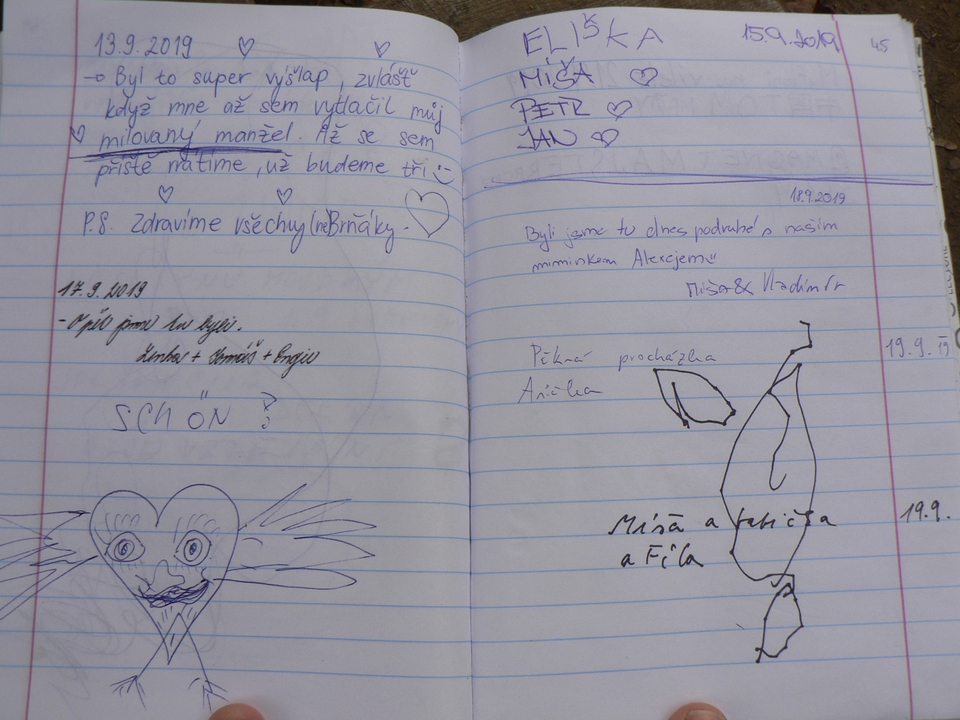 13.9.2019
Byl to super výšlap, zvláště
když mne až sem vytlačil můj
milovaný manžel. Až se sem
příště vrátíme, už budeme tři
P.S. Zdravíme všechny (ne)Brňáky.
17.9.2019
- Opět jsme tu byli.
Lenka + Tomáš + Engie
SCHÖN ?
ELIŠKA 15.9.2019 45
MÍŠA
PETR
JAN
18.9.2019
Byli jsme tu dnes podruhé s naším
miminkem Alexejem
Míša & Vladimír
Pěkná procházka 19.9.19
Anička
Míša a babička 19.9.
a Fíla